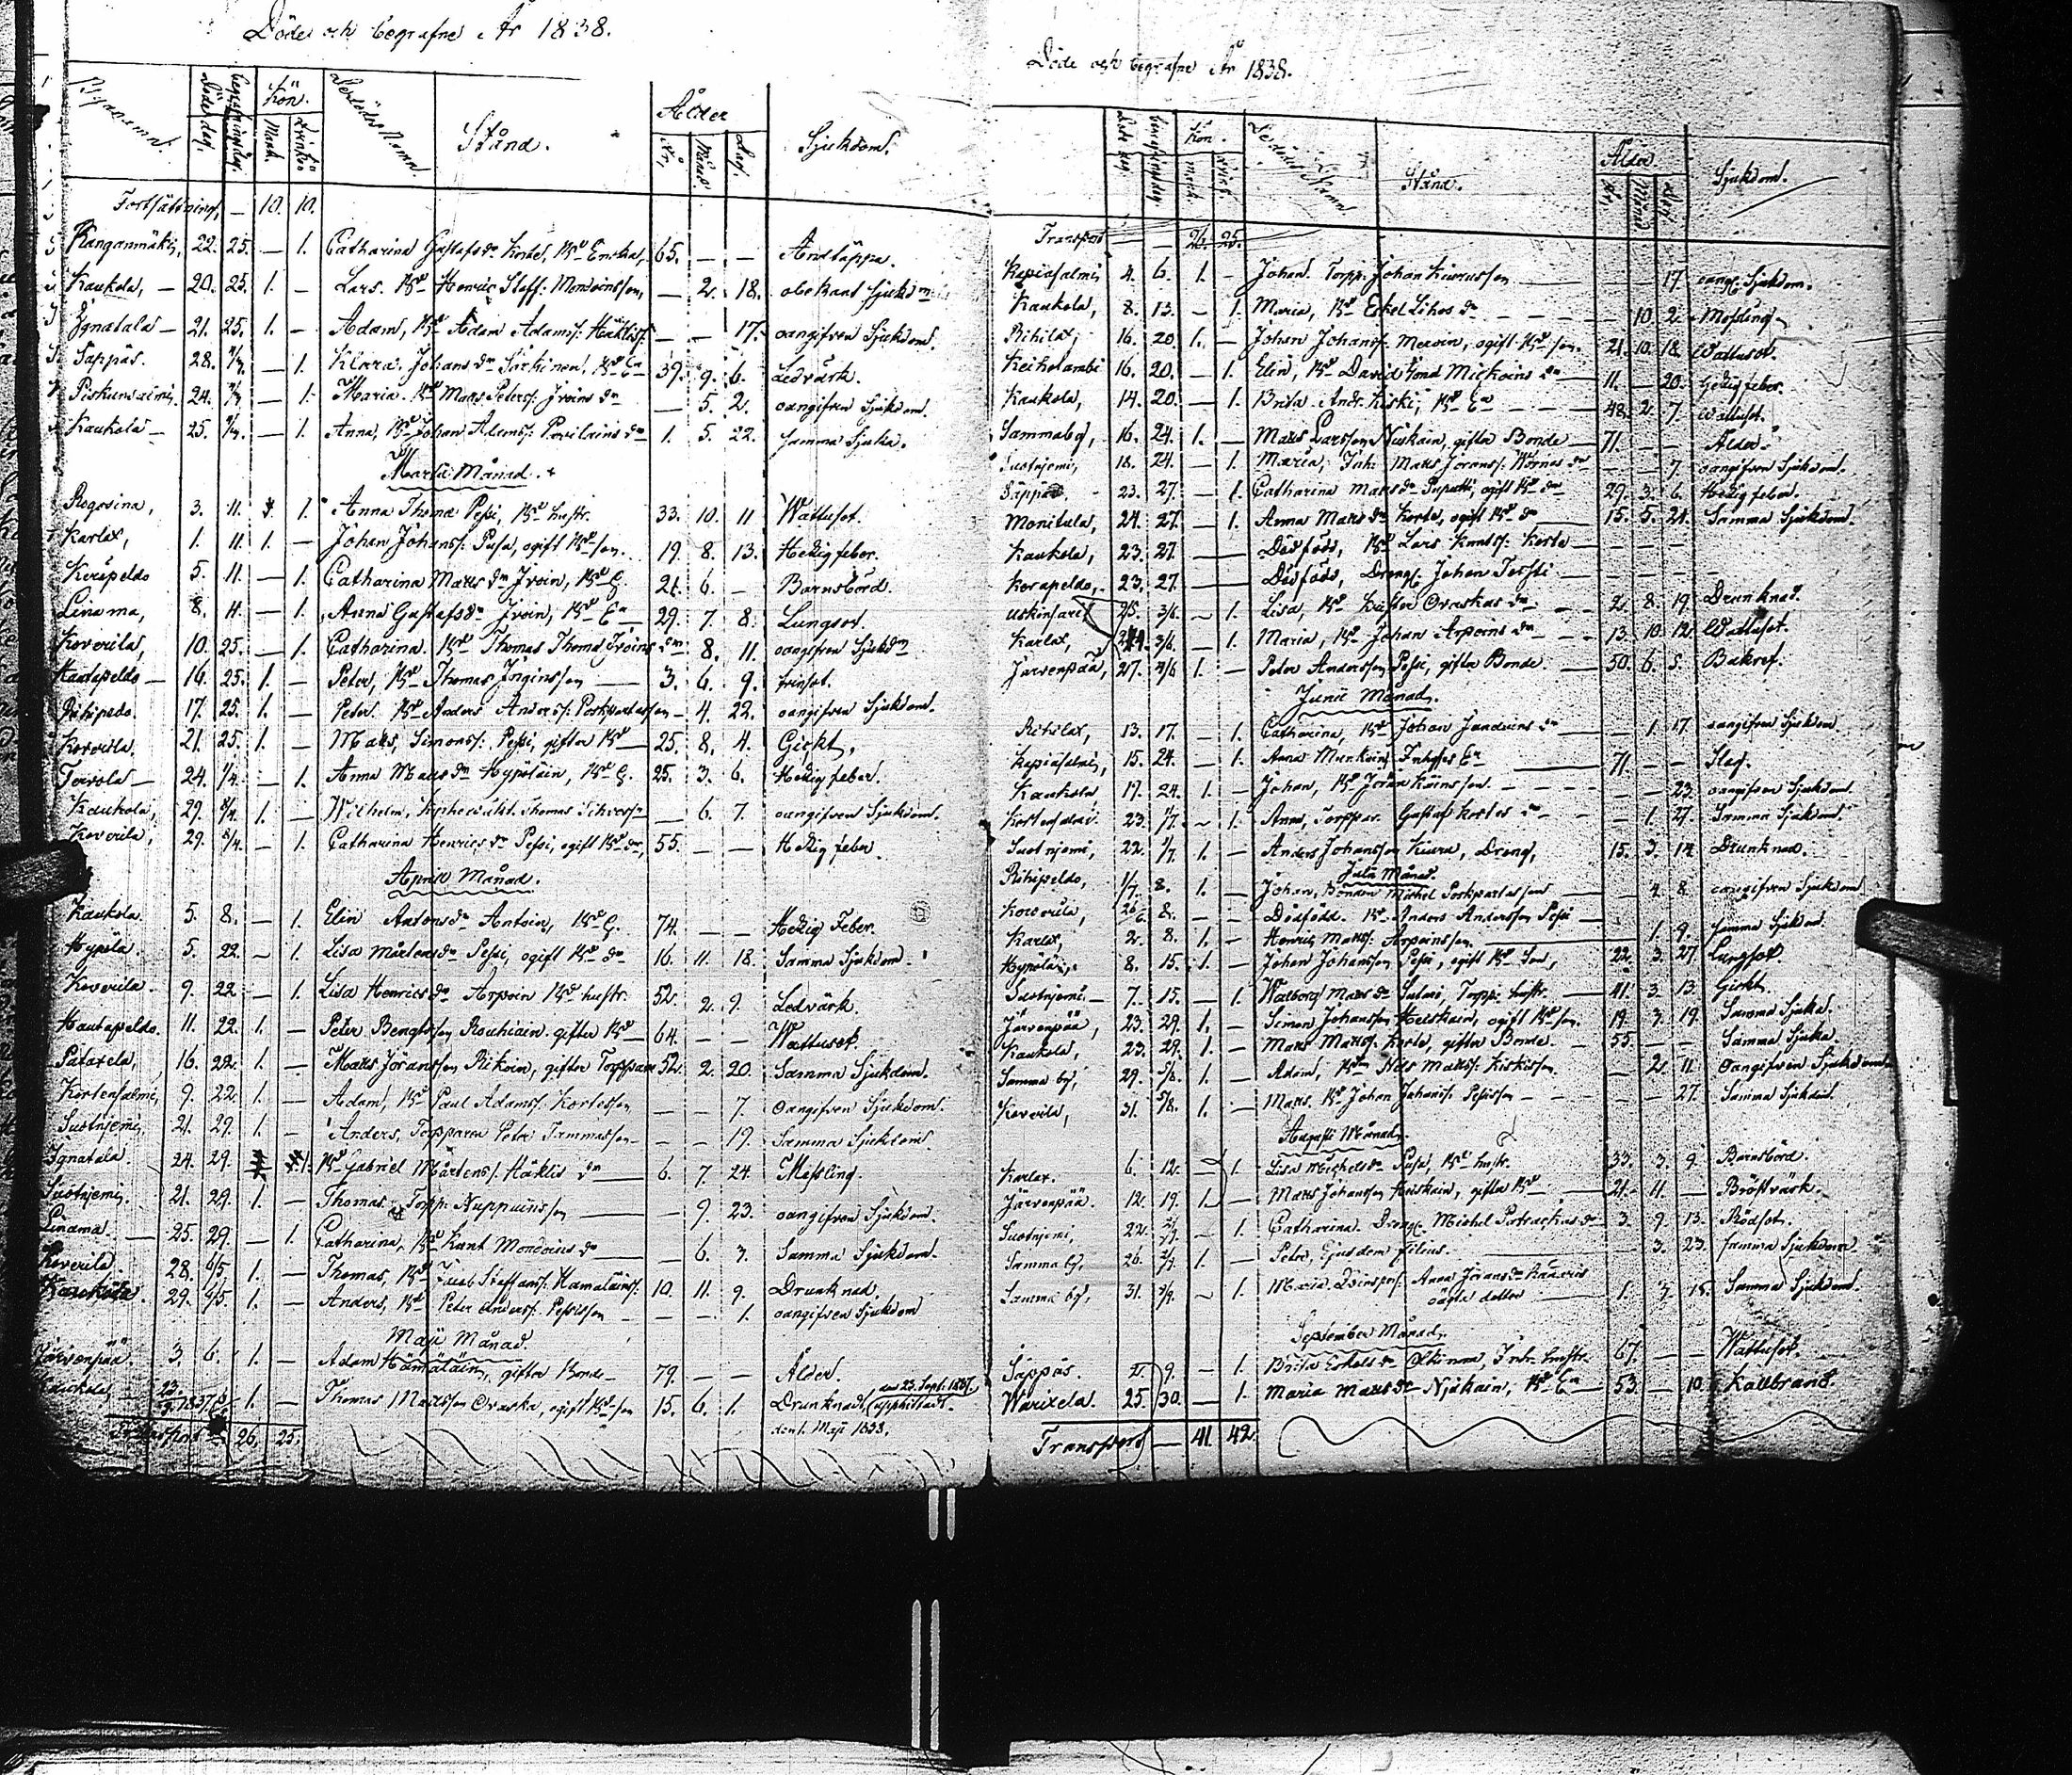 Döde och begrafne År 1838.
Bynamnet. Döde dag. begrafningsdag. Kön. Mank. Qvinkön De dödas Namn. Stånd. Ålder År. Månad. Dag. Sjukdom.
Fortsättning, — 10. 10.
Kanganmäki, 22. 25. — 1. Catharina Gustafsdr Korte, Bd Enka, 65. — — Andtäppa.
Kaukola, — 20. 25. 1. — Lars. Bd Henric Staff: Mondoinsson, — 2. 18. obekant Sjukdm
Ignatala — 21. 25. 1. — Adam, Bd Adam Adamss: — — 17. oangifven Sjukdom.
Säppäs. 28. — 1. Klara Johansdr Särkinen, Bd Ea 39. 9. 6. Ledvärk.
24. — 1. Maria. Bd Mats Peterss: Ivoins dr — 5. 2. oangifven Sjukdom.
Kaukola — 25. — 1. Anna, Bd Johan Adamss: dr 1. 5. 22. samma Sjukd.
Martii Månad.
Rogosina, 3. 11. 1. Anna Thomæ Pessi, Bd hustr. 33. 10. 11 Wattusot.
Karlax, 1. 11. 1. — Johan Johanss: Pusa, ogift Bd son. 19. 8. 13. Hetzig feber.
Koräpeldo 5. 11. — 1. Catharina Matts dr Ivoin, Bd E. 21. 6. — Barnsbörd.
Linama, 8. 11. — 1. Anna Gustafsdr Ivoin, Bd Ea 29. 7. 8. Lungsot.
Koverila, 10. 25. — 1. Catharina. Bd Thomas Thomæ Ivoins dr 8. 11. oangifven Sjukdm
Hautapeldo — 16. 25. 1. — Peter, Bd Thomas Inginsson — 3. 6. 9. trinsot.
Rihipeldo. 17. 25. 1. — Peter. Bd Anders Anderss: Porkpartasson — 4. 22. oangifven Sjukdom.
Koverila, 21. 25. 1. — Matts, Simonss: Pessi, gifter Bd — 25. 8. 4. Gickt,
Tervola — 24. 1/4. — 1. Anna Matts dr Hypöläin, Bd E. 25. 3. 6. Hetzig feber.
Kaukola, 29. 8/4. 1. — Wilhelm, Thomas — 6. 7. oangifven Sjukdom.
Koverila, 29. 8/4. — 1. Catharina Henricsdr Pessi, ogift Bd dr, 55. — — Hetzig feber.
April Månad.
Kaukola. 5. 8. — 1. Elin Antonsdr Antoin, Bd E. 74. — — Hetzig Feber.
Hypölä. 5. 22. — 1. Lisa Mårtensdr Pessi, ogift Bd dr 16. 11. 18. Samma Sjukdom.
Koverila 9. 22 — 1. Lisa Henricsdr Arpoin Bd hustr. 52. 2. 9. Ledvärk.
Hautapeldo. 11. 22. 1. — Peter Bengtsson Rouhiain. gifter Bd — 64. — — Wattusot.
16. 22. 1. — Matts Göransson Rikoin, gifter Torppare 52. 2. 20. Samma Sjukdom.
Kortensalmi, 9. 22. 1. — Adam, Bd Paul Adamss: Kortesson — — 7. oangifven Sjukdom.
Suotnjemi, 21. 29. 1. — Anders, Torpparen Peter Tammasson — — 19. Samma Sjukdom.
Ignatala. 24. 29. 1. Bd Gabriel Mårtens: Häklis dr — 6. 7. 24. Mässling.
Suotnjemi, 21. 29. 1. — Thomas. Torpp: Nuppuinsson — 9. 23. oangifven Sjukdom.
Linama. — 25. 29. — 1. Catharina, Bd Knut Mondoins dr — 6. 3. Samma Sjukdom.
Koverila. 28. 6/5. 1. — Thomas, Bd Jacob Staffanss: Hämäläinss: 10. 11. 9. Drunknad.
29. 6/5. 1. — Anders, Bd Peter Anderss: Pessisson — — 1. oangifven Sjukdom
Maji Månad.
Järvenpää. 3. 6. 1. — Adam Hämäläin, gifter Bonde 79. — — Ålder.
Kaukola, 23. 1837. 1. — Thomas Mattsson Oraska, ogift Bd son 15. 6. 1. Drunknad, den 23. Sept. 1837. upphittadt
den 1. Maji 1838.
Transport 26. 25.
Döde och begrafne År 1838.
Döde dag begrafningsdag Kön. mank. qvink. De dödas Namn Stånd. Ålder År. Månad Dag. Sjukdom.
Transport — 26. 25.
Kapiasalmi, 4. 6. 1. — Johan. Torpp: Johan Kiurusson — 17. oang: Sjukdom.
Kaukola, 8. 13. — 1. Maria, Bd Eskel Lihos dr — 10. 2. Mässling
Rihila, 16. 20. 1. — Johan Johanss: Mervoin, ogift Bd son. 21. 10. 18. Wattusot.
16. 20. — 1. Elin, Bd David Mickoins dr 11. — 20. Hetzig feber.
Kaukola, 14. 20. — 1. Brita Andr: Kiski, Bd Ea — 48. 2. 7. Wattusot.
Sammaby, 16. 24. 1. — Matts Larsson Niskain, gifter Bonde — 71. — — Ålder.
Suotnjemi, 18. 24. — 1. Maria, Inh: Matts Görans: dr — — 7. oangifven Sjukdom.
Säppäs, 23. 27. — 1. Catharina Mats dr Puputti, ogift Bd dr 29. 3. 6. Hetzig feber.
Monitula, 24. 27. — 1. Anna Mats dr Korte, ogift Bd dr — 15. 5. 21. Samma Sjukdom.
Kaukola, 23. 27. — Dödfödd, Bd Lars Knutss: Korte — — —
Korapeldo, 23. 27. — Dödfödd, Dreng: Johan — — —
25. 3/6. — 1. Lisa, Bd Oraskas dr — 2. 8. 19. Drunknad.
Karlax, 24. 3/6. — 1. Maria, Bd Johan Arpoins dr — 13. 10. 12. Wattusot.
Järvenpää, 27. 3/6 1. — Peter Andersson Pessi, gifter Bonde — 50. 6. 5. Bukref.
Junii Månad.
Rihilax, 13. 17. — 1. Catharina, Bd Johan dr — 1. 17. oangifven Sjukdom
Kapiasalmi, 15. 24. — 1. Anna Munkoin, Inhyses Ea — 71. — — Slag.
Kaukola 17. 24. 1. — Johan, Bd Göran Käinsson. — — 23. oangifven Sjukdom.
Kortesalmi 23. 1/7. — 1. Anna, Torppar. Gustaf Kortes dr — 1. 27. Samma Sjukdom.
Suotnjemi, 22. 1/7. 1. — Anders Johansson Kiuru, Dreng, 15. 3. 14. Drunknad.
Julii Månad.
Rihipeldo, 1/7 8. 1. — Johan, Bonden Michel Porkpartasson — 4. 8. oangifven Sjukdom
Koverila, 26/6 8. — — Dödfödd. Bd Anders Andersson Pessi —
Karlax, 2. 8. 1. — Henric Matts: Arpoinsson. — 1. 9. samma Sjukdom.
Hypölä, 8. 15. 1. — Johan Johansson Pessi, ogift Bd Son, 22. 3. 27. Lungsot.
Suotnjemi — 7. 15. — 1. Walborg Mats dr Torpp: hustr. — 41. 3. 13. Gickt.
Järvenpää, 23. 29. 1. — Simon Johansson Heiskain, ogift Bd son. 19. 3. 19. Samma Sjukd.
Kaukola, 23. 29. 1. — Mats Matts: Korte, gifter Bonde. — 55. — — Samma Sjukd.
Samma by, 29. 5/8. 1. — Adam, Bd Nils Matts: Kiskisson. — 2. 11. oangifven Sjukdom
Koverila, 31. 5/8. 1. — Mats. Bd Johan Johanss: Pessisson — — 27. Samma Sjukdom.
Augusti Månad.
Karlax. 6. 12. — 1. Lisa Michelsdr Pusa, Bd hustr. 33. 3. 9. Barnsbörd.
Järvenpää 12. 19. 1. — Mats Johansson Heiskain, gifter Bd — 21. 11. — Bröstvärk.
Suotnjemi, 22. — 1. Catharina. Dreng: Michel dr 3. 9. 13. Rödsot.
Samma by, 26. 2/9. 1. — Peter, Ejusdem filius. — 3. 23. samma Sjukdom.
Samma by, 31. 2/9. — 1. Maria Qvinspers: Anna Göransdr
oägta dotter — 1. 3. 15. Samma Sjukdom.
September Månad.
Säppäs. 2. 9. — 1. Brita Eskels dr Inh: hustr. 67. — — Wattusot.
Warixela. 25. 30. — 1. Maria Mats dr Njukain, Bd Ea — 53. — 10. Kallbrand.
Transport — 41. 42.